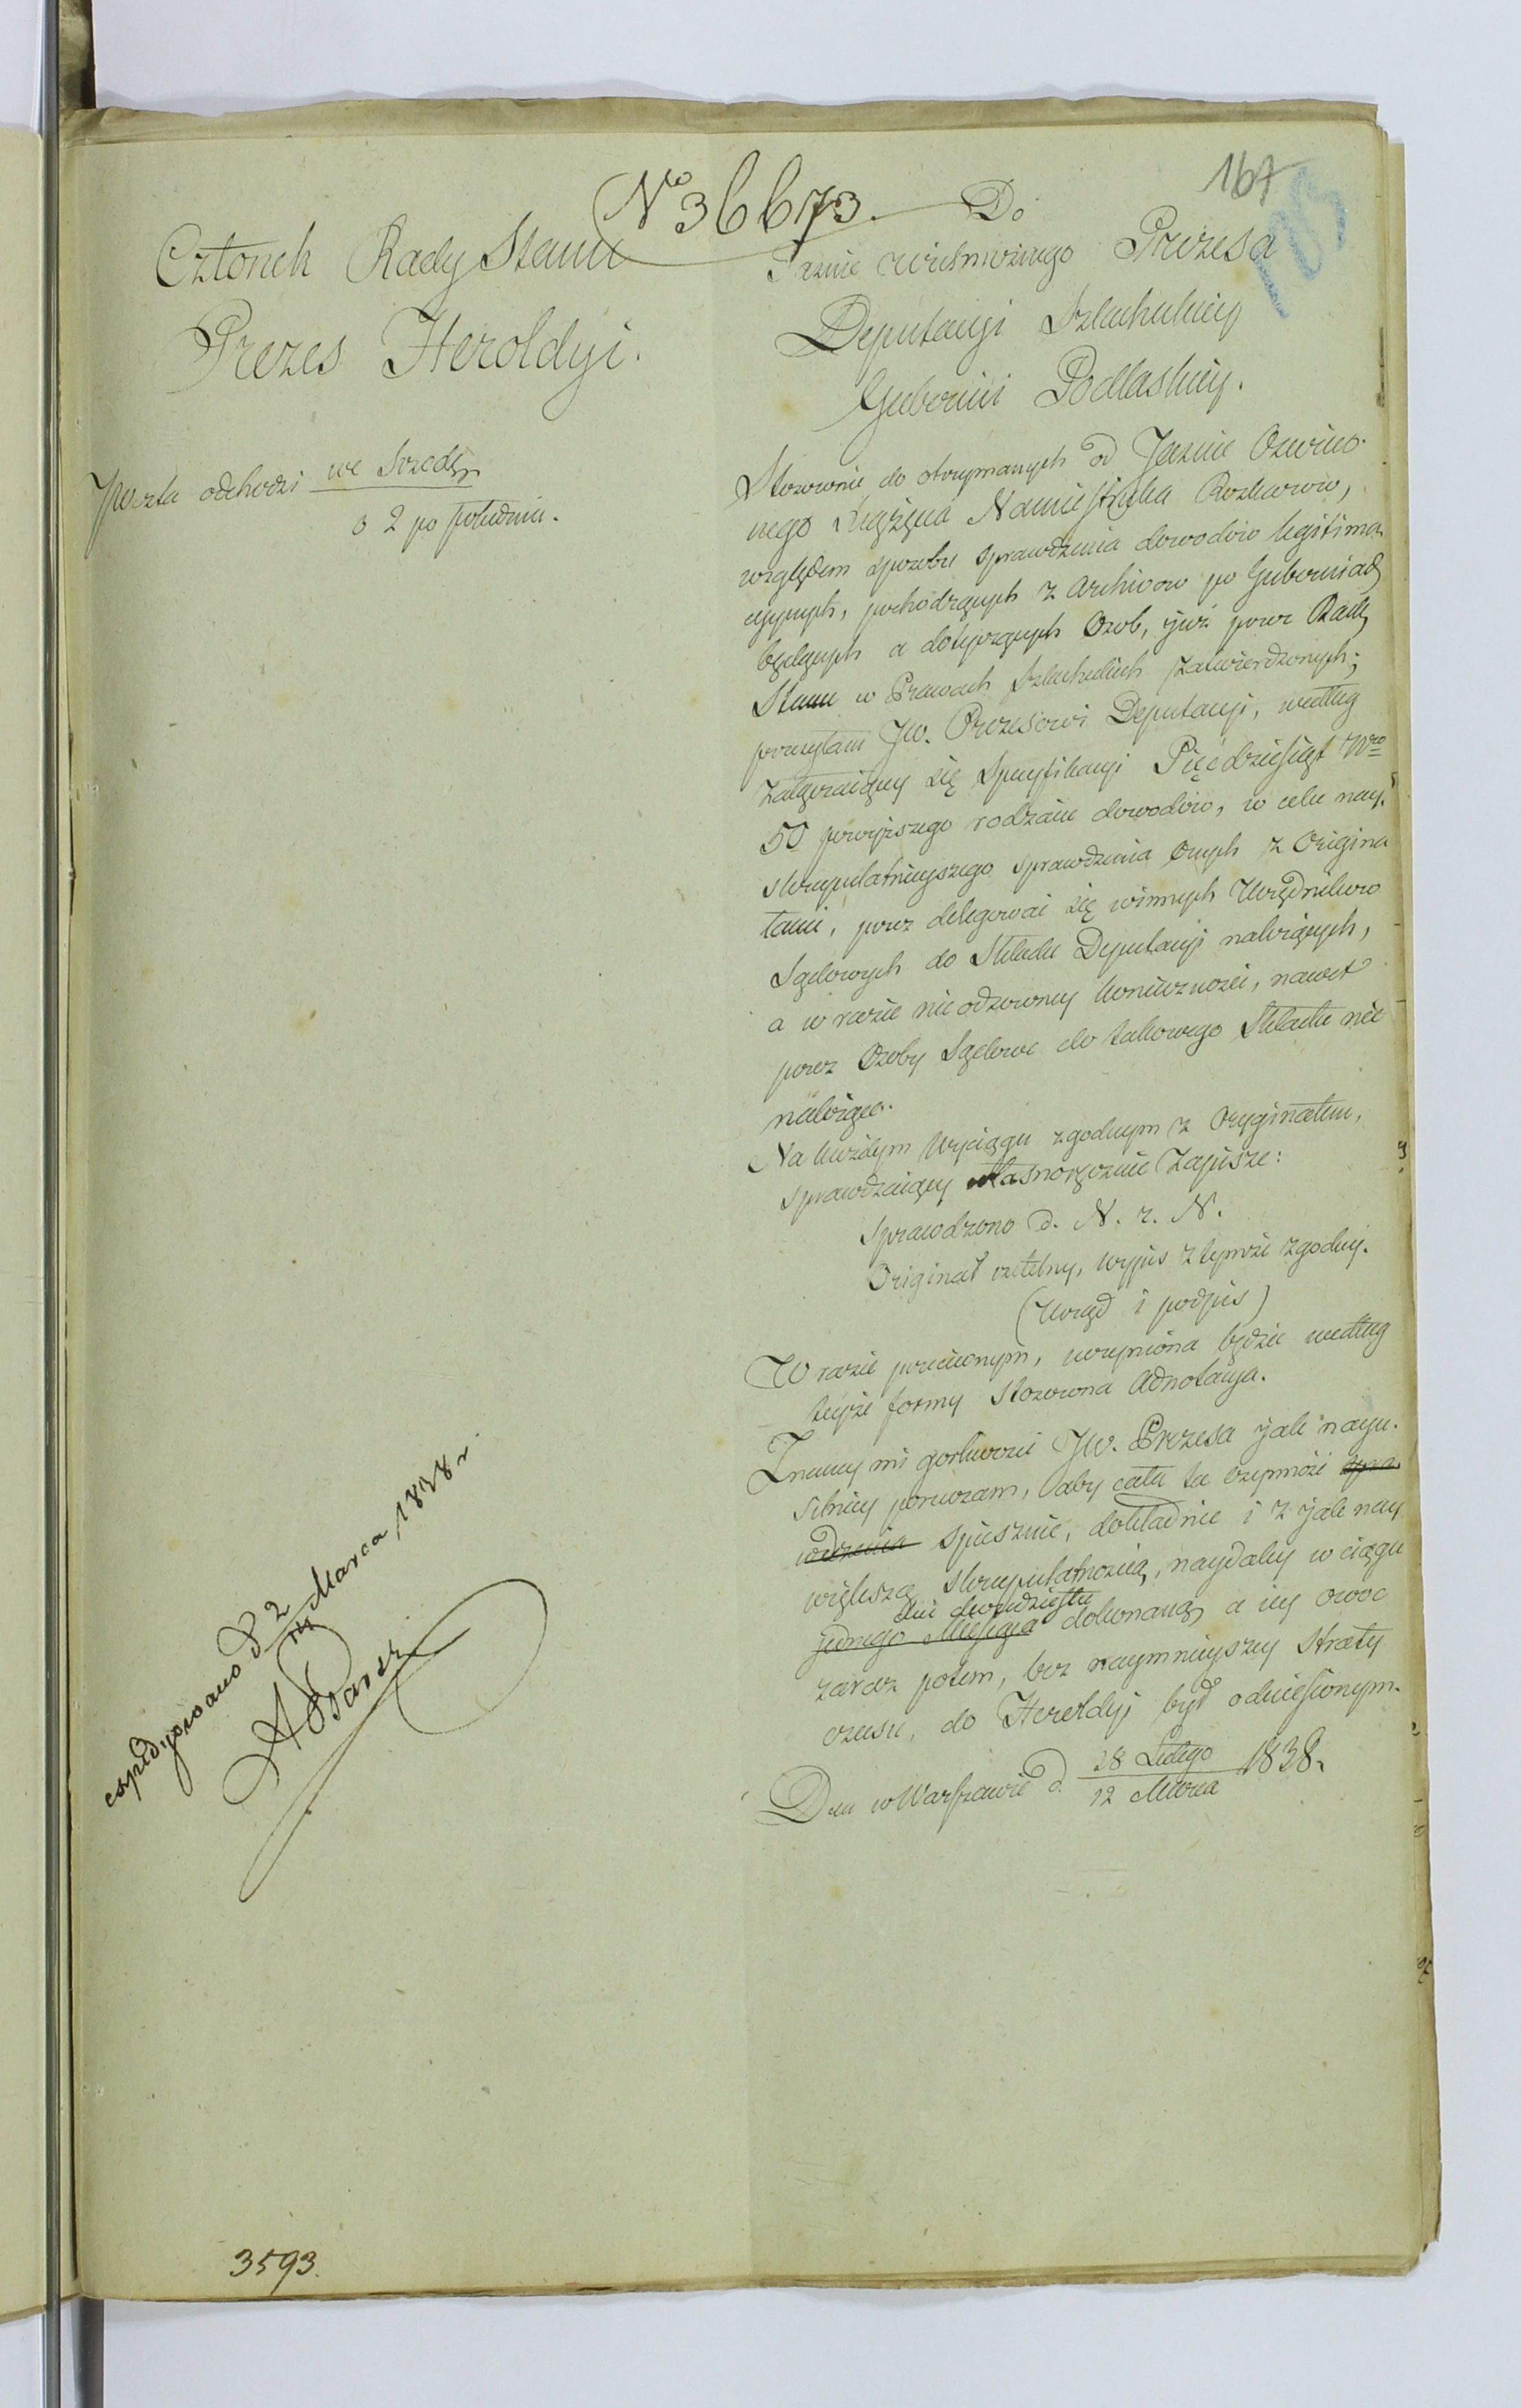 167
103
No 36673.
Członek Rady Stanu
Prezes Heroldyi.
Poczta odchodzi we Srzodę
o 2 po południu.
Do
Jaśnie Wielmożnego Prezesa
Deputacyi Szlacheckiey
Gubernii Podlaskiey.
Stosownie do otrzymanych od Jaśnie Oświeco-
nego Xiążęcia Namiestnika Rozkazów,
względem sposobu sprawdzenia dowodów legitima-
cyjnych, pochodzących z Archiwow po Guberniach
będących a dotyczących Osob, już przez Radę
Stanu w Prawach Szlacheckich zatwierdzonych;
przesyłam JW. Prezesowi Deputacyi, według
załączaiącey się Specyfikacyi Pięćdziesiąt Nro
50 powyższego rodzaiu dowodów, w celu nay-
skrupulatnieyszego sprawdzenia onych z Origina-
łami, przez delegować się winnych Urzędników
Sądowych do Składu Deputacyi należących,
a w razie nieodzowney konieczności, nawet
przez Osoby Sądowe do takowego Składu nie
należące.
Na każdym Wyciągu zgodnym z Oryginałem,
sprawdzaiący własnoręcznie Zapisze:
Sprawdzono d. N. r. N.
Originał rzetelny, wypis z tymże zgodny.
(Urząd i podpis)
W razie przeciwnym, uczyniona będzie według
teyże formy stosowna Adnotacya.
Znaney mi gorliwości JW. Prezesa jak nayu-
silniey poruczam, aby cała ta czynność spra-
wdzenia spiesznie, dokładnie i z jak nay-
większą skrupulatnością, naydaley w ciągu
dni dwudziestu
jednego Miesiąca dokonaną, a iey owoc
zaraz potem, bez naymnieyszey straty
czasu, do Heroldyi był odniesionym.
Dan w Warszawie d. 28 Lutego
12 Marca 1838.
expedyiowano d. 2
14 Marca 1838 r.
3593.